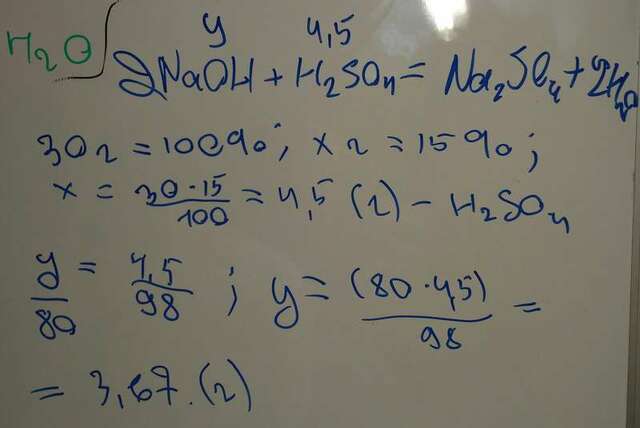 H₂O
y 4,5
2NaOH + H₂SO₄ = Na₂SO₄ + 2H₂O
30 г = 100%; x г = 15%;
x = 30·15/100 = 4,5 (г) - H₂SO₄
y/80 = 4,5/98; y = (80·4,5)/98 =
= 3,67. (г)